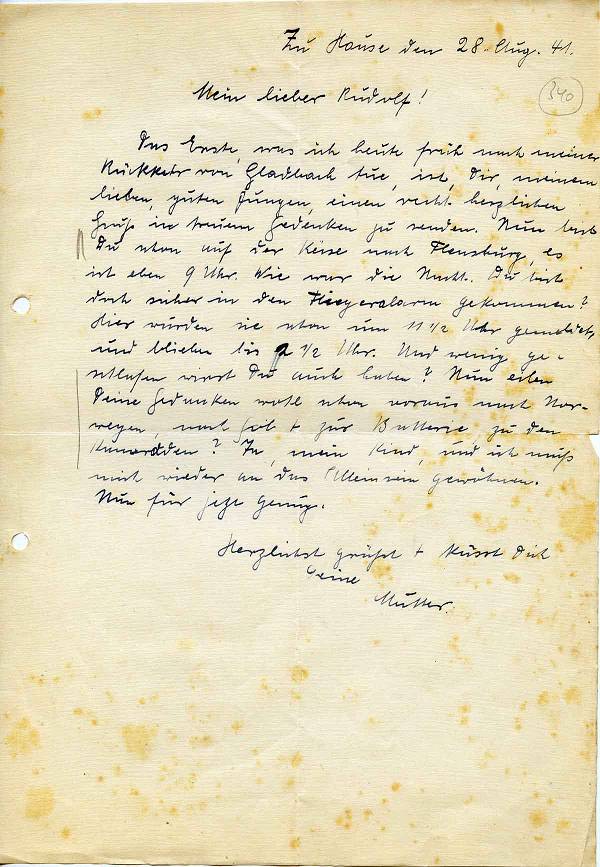 Zu Hause den 28. Aug. 41.
340
Mein lieber Rudolf!
Das Erste, was ich heute früh nach meiner
Rückkehr von Gladbach tue, ist, Dir, meinem
lieben, guten Jungen, einen recht herzlichen
Gruß in treuem Gedenken zu senden. Nun bist
Du schon auf der Reise nach Flensburg, es
ist eben 9 Uhr. Wie war die Nacht. Du bist
doch sicher in den Fliegeralarm gekommen?
Hier wurden sie schon um 11 1/2 Uhr gemeldet,
und blieben bis 2 1/2 Uhr. Und wenig ge-
schlafen wirst Du auch haben? Nun eilen
Deine Gedanken wohl schon voraus nach Nor-
wegen, nach + zur Batterie, zu den
Kameraden? Ja, mein Kind, und ich muß
mich wieder an das Alleinsein gewöhnen.
Nun für jetzt genug.
Herzlichst grüßt + küsst Dich
Deine
Mutter.